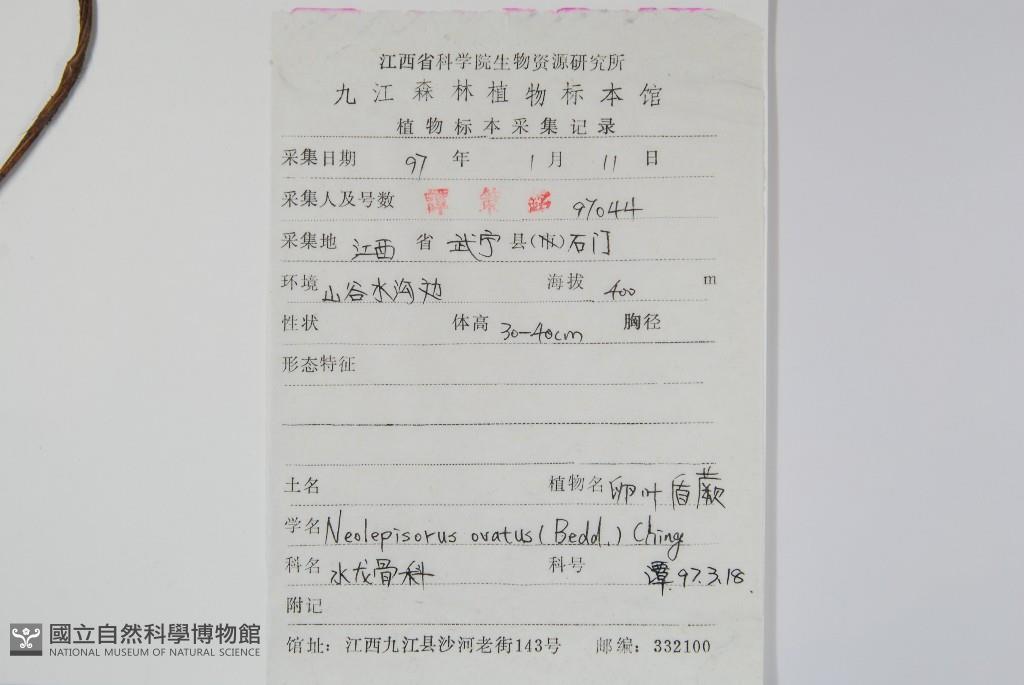 江西省科学院生物资源研究所
九江森林植物标本馆
植物标本采集记录
采集日期 97 年 1 月 11 日
采集人及号数 譚策铭 97044
采集地 江西 省 武宁 县(市)石门
环境 山谷水沟边 海拔 400 m
性状 体高 30-40cm 胸径
形态特征
土名 植物名 卵叶盾蕨
学名 Neolepisorus ovatus (Bedd.) Ching
科名 水龙骨科 科号 譚.97.3.18.
附记
馆址：江西九江县沙河老街143号 邮编：332100
國立自然科學博物館
NATIONAL MUSEUM OF NATURAL SCIENCE